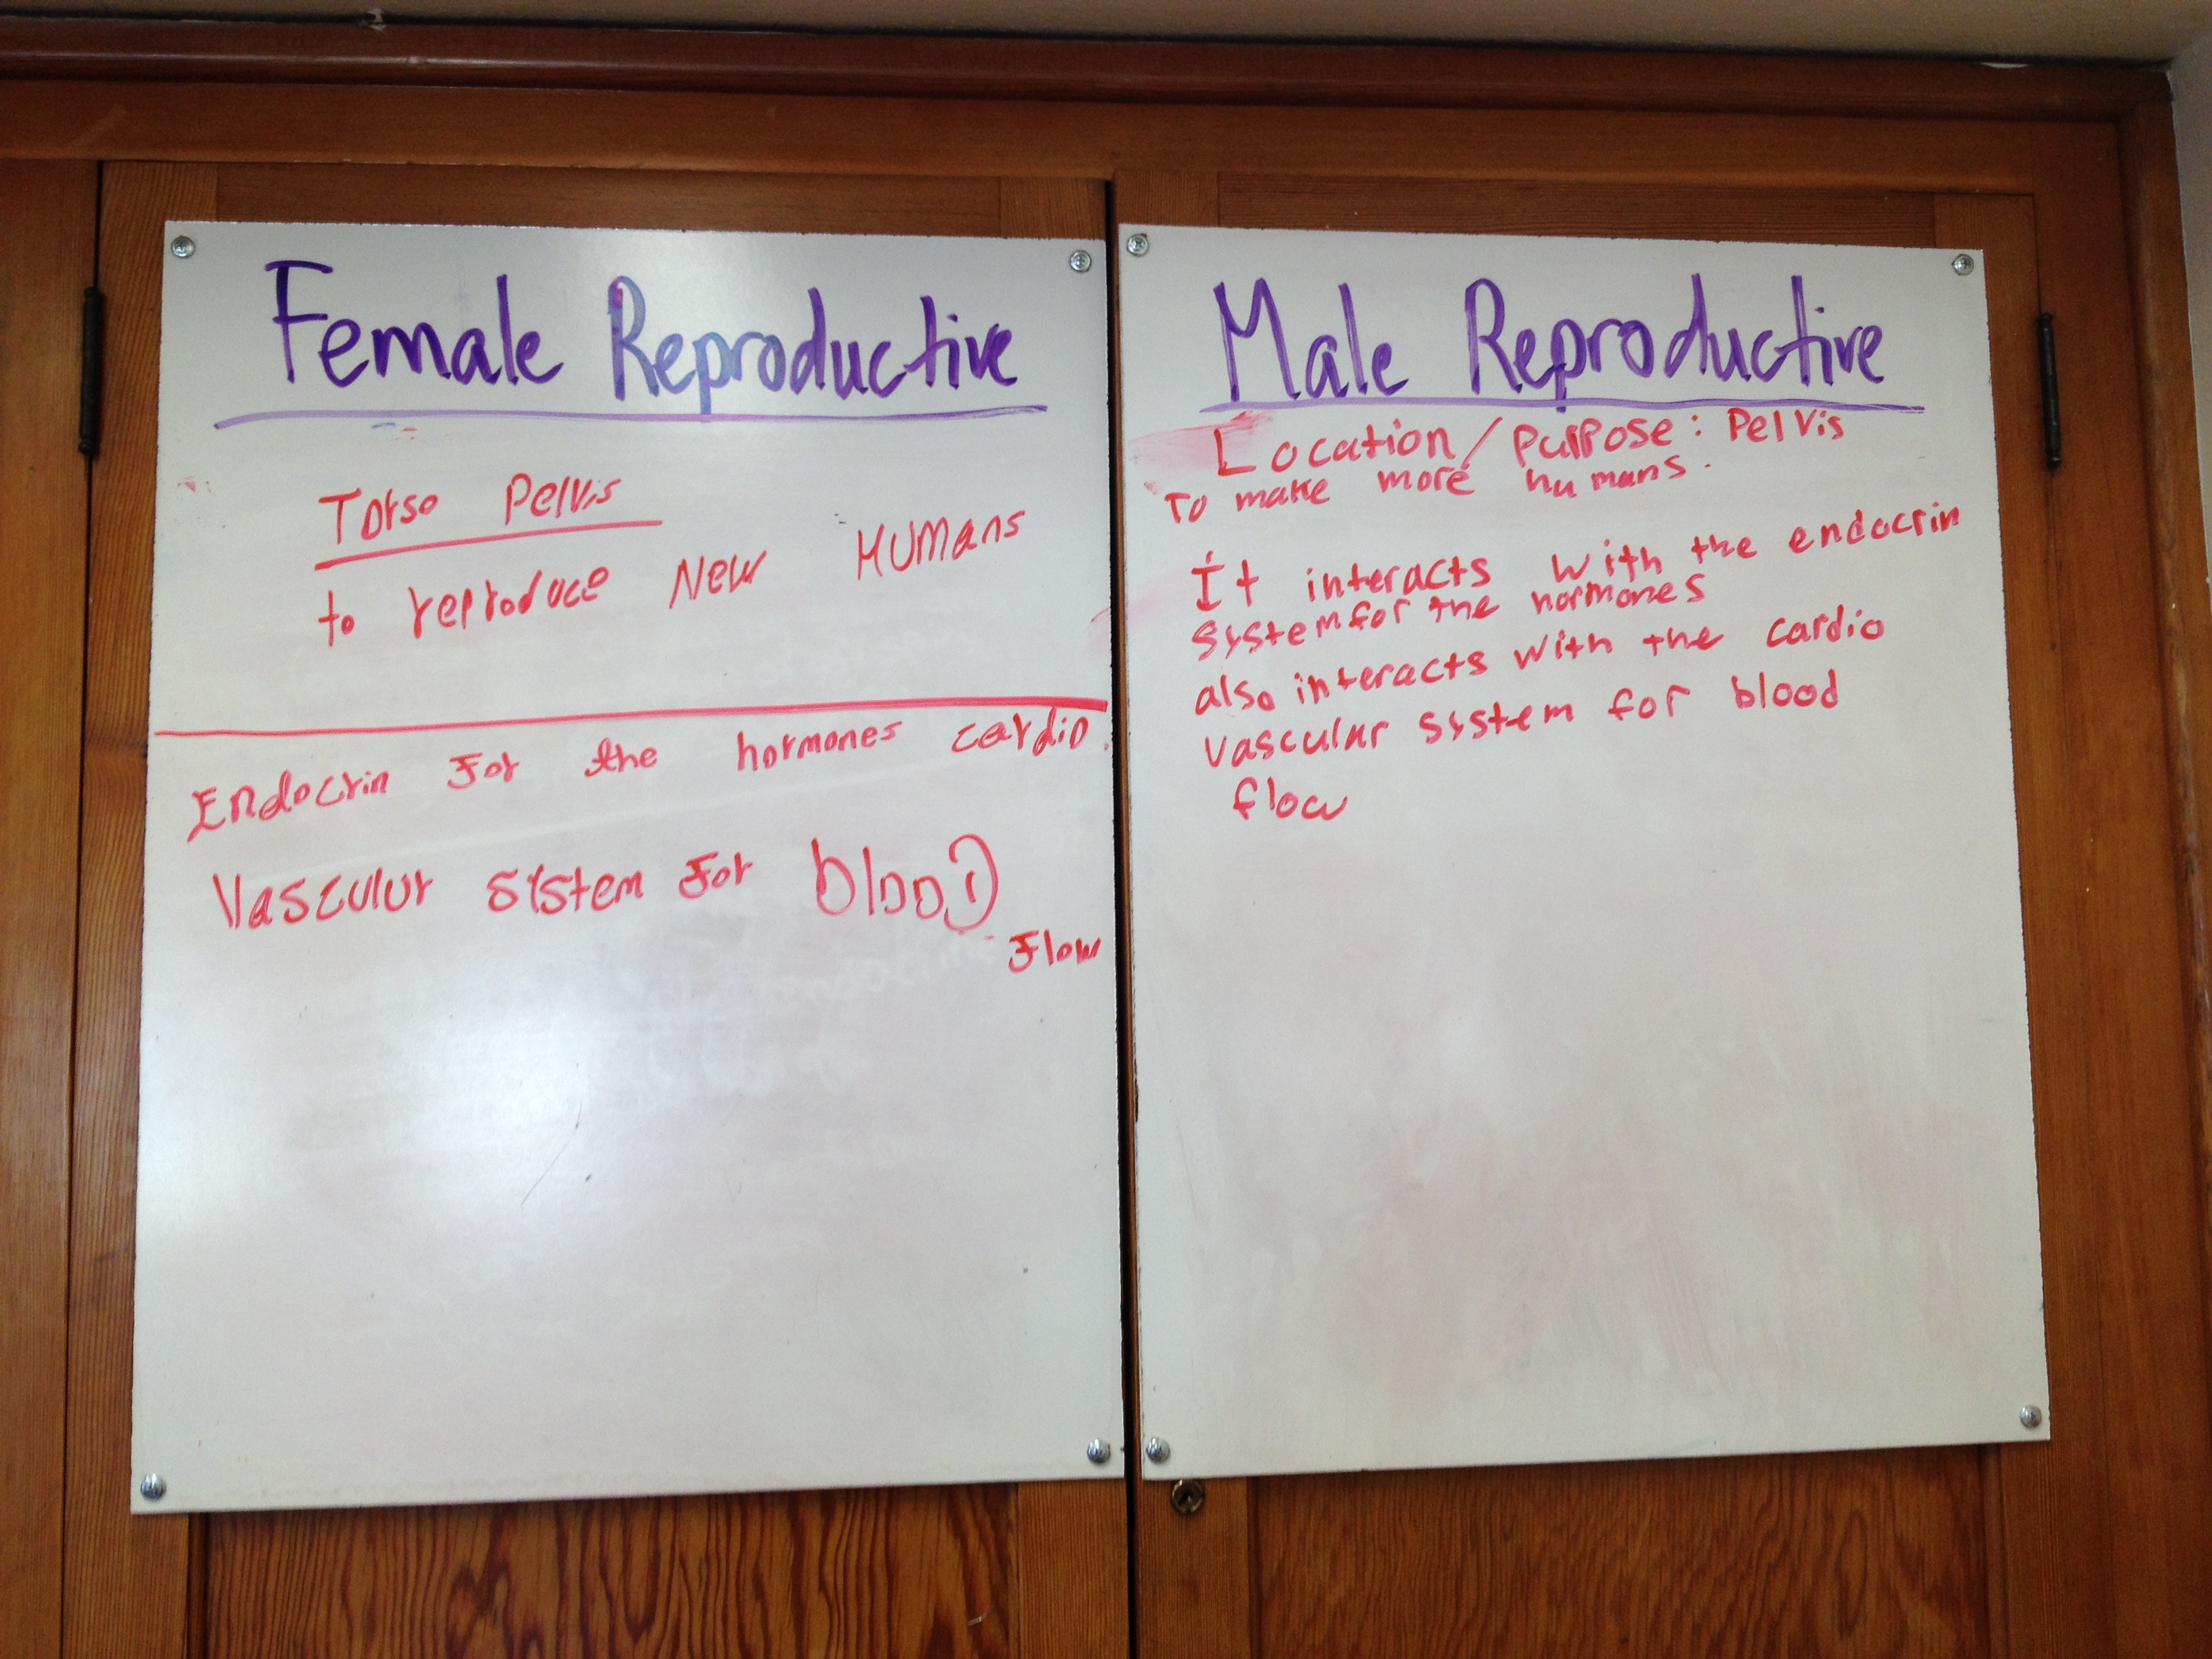 Female Reproductive
Torso Pelvis
to reproduce New Humans
Endocrin For the hormones cardio
Vascular system For blood
Flow
Male Reproductive
Location/Purpose: Pelvis
To make more humans.
It interacts with the endocrin
system for the hormones
also interacts with the cardio
vascular system for blood
flow